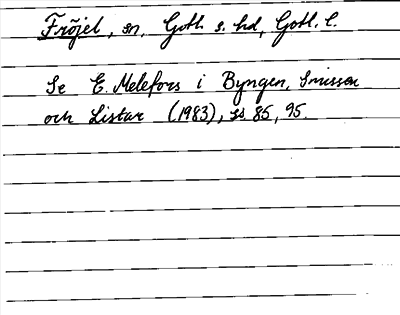 Fröjel, sn, Gotl. s. hd, Gotl. l.
Se E. Melefors i Byngen, Smissen
och Listar (1983), ss 85, 95.